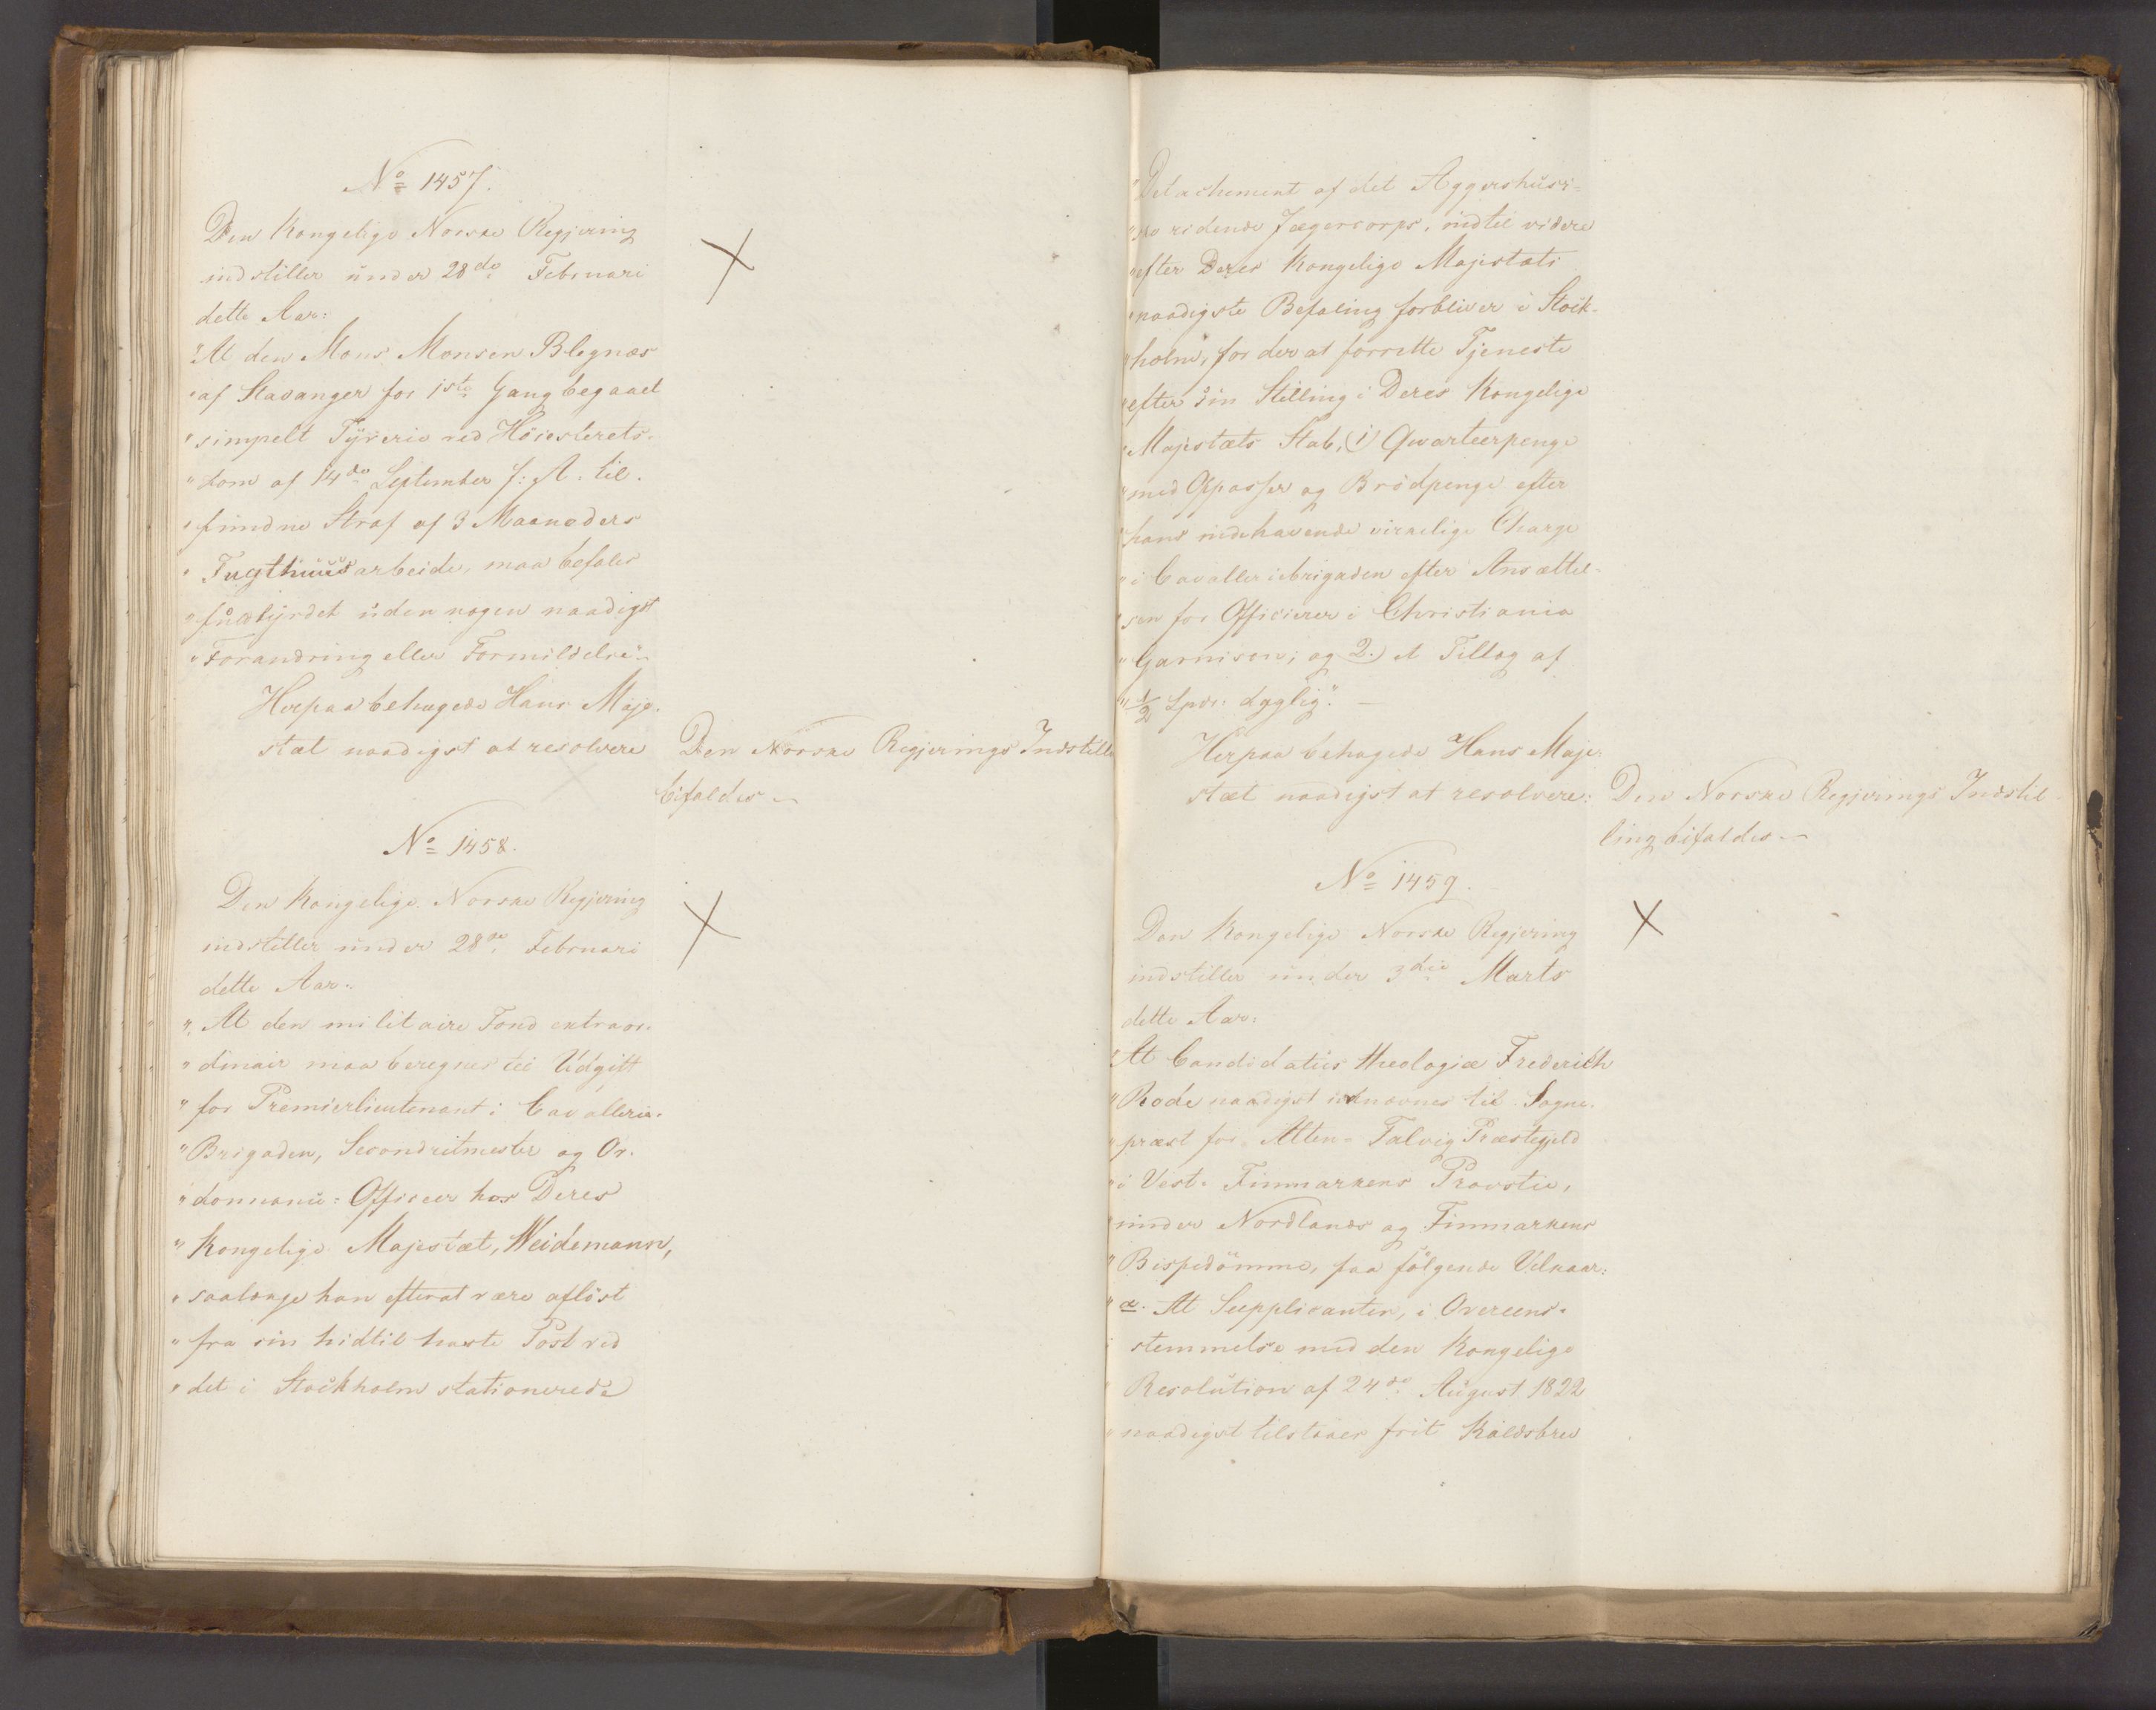 No 1457.
Den Kongelige Norske Regjering
indstiller under 28de Februari
dette Aar:
"At den Mons Monsen Blegnæs
"af Stavanger for 1ste Gang begaaet
"simpelt Tyverie ved Höiesterets-
"dom af 14de September f: A. til-
"fundne Straf af 3 Maaneders
"Tugthuusarbeide, maa befales
"fuldbyrdet uden nogen naadigst
"Forandring eller Formildelse"_
Herpaa behagede Hans Maje-
stæt naadigst at resolvere
Den Norske Regjerings Indstill
bifaldes_
No 1458.
Den Kongelige Norske Regjering
indstiller under 28de Februari
dette Aar:
"At den militaire Fond extraor-
"dinair maa beregnes til Udgift
"for Premierlieutenant i Cavallerie-
"Brigaden, Secondritmester og Or-
"donnance-Officeer hos Deres
"Kongelige Majestæt, Weidemann,
"saalænge han efter at være aflöst
"fra sin hidtil havte Post ved
"det i Stockholm stationerede
"Detachement af det Aggershusi-
"ske ridende Jægercorps, indtil videre
"efter Deres Kongelige Majestæts
"naadigste Befaling forbliver i Stock-
"holm, for der at forrette Tjeneste
"efter sin Stilling i Deres Kongelige
"Majestæts Stab, 1) Qvarteerpenge
"med Oppasser og Brödpenge efter
"hans indehavende virkelige Charge
"i Cavalleriebrigaden efter Ansættel-
"sen for Officierer i Christiania
"Garnison; og 2.) et Tillæg af
"1/2 Spd: dagligt". _
Herpaa behagede Hans Maje-
stæt naadigst at resolvere:
Den Norske Regjerings Indstil-
ling bifaldes_
No 1459.
Den Kongelige Norske Regjering
indstiller under 3die Marts
dette Aar:
"At Candidatus theologiæ Frederich
"Rode naadigst udnævnes til Sogne-
"præst for Alten-Talvig Præstegjeld
"i Vest-Finmarkens Provstie,
"under Nordlands og Finmarkens
"Bispedömme, paa fölgende Vilkaar:
"a. At Supplicanten, i Overeens-
"stemmelse med den Kongelige
"Resolution af 24de August 1822
"naadigst tilstaaes frit Kaldsbrev